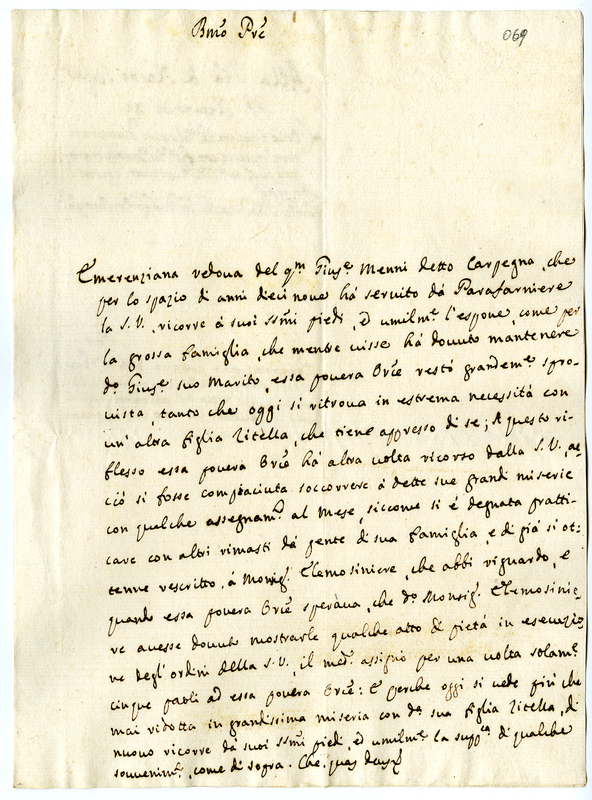 Bmo Pre
069
Emerenziana vedova del qm Giuse Menni detto Carpegna, che
per lo spazio di anni dieci nove há servito dá Parafarniere
la S.V., ricorre á suoi ssmi piedi, ed umilme l'espone, come per
la grossa famiglia, che mentre visse há dovuto mantenere
do Giuse suo Marito, essa povera Orce restó grandeme spro-
vista, tanto che oggi si ritrova in estrema necessitá con
un' altra figlia Zitella, che tiene appresso di se; A questo ri-
flesso essa povera Orce há altra volta ricorso dalla S.V., ac-
ció si fosse compiaciuta soccorrere á dette sue grandi miserie
con qualche assegnamo al Mese, siccome si é degnata pratti-
care con altri rimasti dá gente di sua famiglia, e di giá si ot:
tenne rescritto, á Monsigr Elemosiniere, che abbi riguardo, e
quando essa povera Orce sperava, che do Monsigr Elemosinie-
re avesse dovuto mostrarle qualche atto di pietá in esecuzio-
ne degli ordini della S.V., il medo assignó per una volta solame
cinque paoli ad essa povera Orce: E perche oggi si vede piú che
mai ridotta in grandissima miseria con da sua figlia Zitella, di
nuovo ricorre dá suoi ssmi piedi, ed umilme la suppca di qualche
sovvenimo, come di sopra. Che quas deus